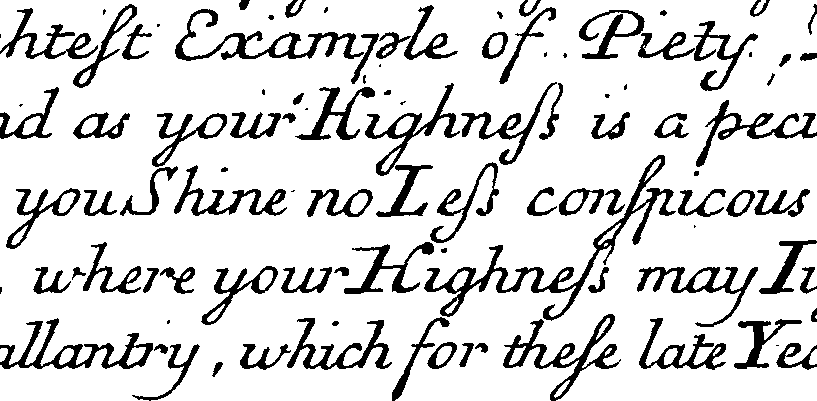 hteſt Example of Piety,
nd as your Highneſs is a pecu
you Shine no Leſs conſpicous
where your Highneſs may Ju
allantry, which for theſe late Yea